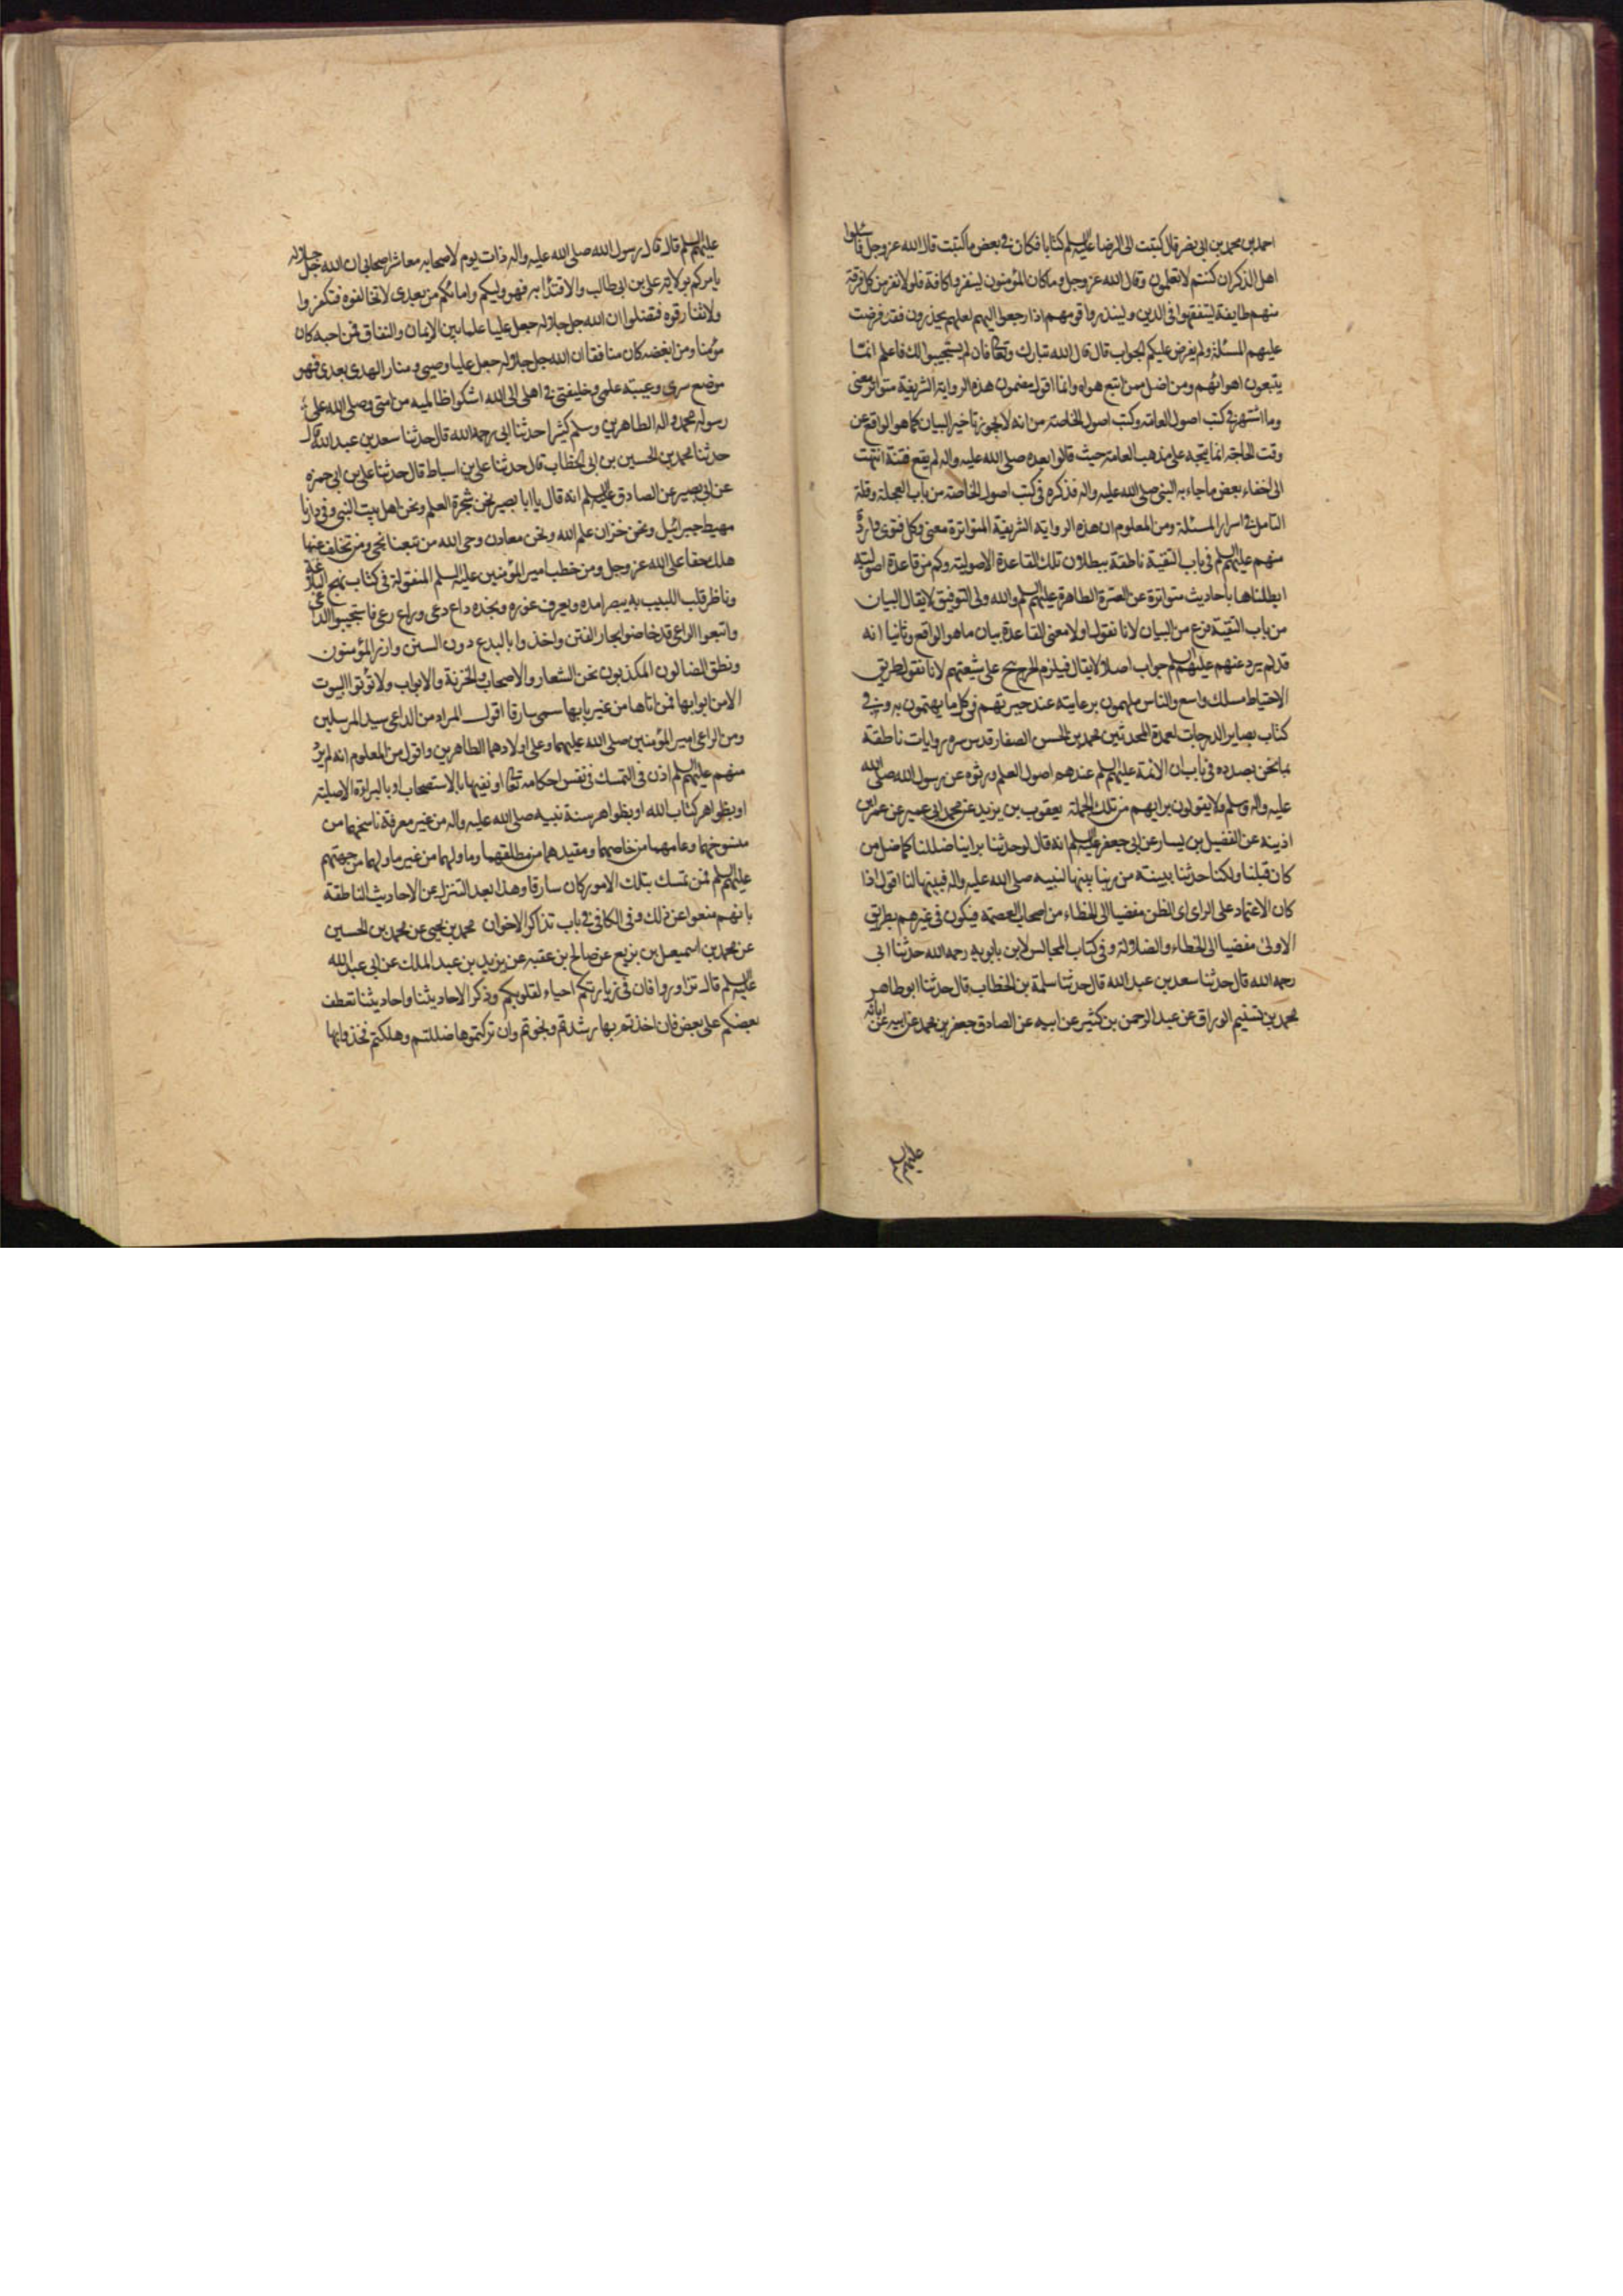 احمد بن محمد بن ابى نصر قال كتبت الى الرضا عليه السلم كتابا فكان فى بعض ما كتبت قال الله عز وجل فاسئلوا
اهل الذكر ان كنتم لا تعلمون وقال الله عز وجل وما كان المؤمنون لينفروا كافة فلولا نفر من كل فرقة
منهم طايفة ليتفقهوا فى الدين ولينذروا قومهم اذا رجعوا اليهم لعلهم يحذرون فقد فرضت
عليهم المسئلة ولم يفرض عليكم الجواب قال قال الله تبارك وتعالى فان لم يستجيبوا لك فاعلم انما
يتبعون اهوائهم ومن اضل ممن اتبع هواه وانما اقول مضمون هذه الرواية الشريفة متواتر معنى
وما اشتهر فى كتب اصول العامة وكتب اصول الخاصة من انه لا يجوز تاخير البيان كما هو الواقع عن
وقت الحاجة انما يتجه على مذهب العامة حيث قالوا بعده صلى الله عليه واله لم يقع فتنة انتهت
الى اخفاء بعض ما جاء به النبى صلى الله عليه واله فذكره فى كتب اصول الخاصة من باب العجلة وقلة
التامل فى اسرار المسئلة ومن المعلوم ان هذه الرواية الشريفة المتواترة معنى وكل فتوى واردة
منهم عليهم السلم فى باب التقية ناطقة ببطلان تلك القاعدة الاصولية وكم من قاعدة اصولية
ابطلناها باحاديث متواترة عن العترة الطاهرة عليهم السلم والله ولى التوفيق لا يقال البيان
من باب التقية نوع من البيان لانا نقول اولا معنى القاعدة بيان ما هو الواقع وثانيا انه
قد لم يرد عنهم عليهم السلم جواب اصلا لا يقال فيلزم الحرج ح على شيعتهم لانا نقول طريق
الاحتياط مسلك واسع والناس ملهمون برعايته عند حيرتهم فى كل ما يهتمون به وفى
كتاب بصاير الدرجات لعمدة المحدثين محمد بن الحسن الصفار قدس سره روايات ناطقة
بما نحن بصدده فى باب ان الائمة عليهم السلم عندهم اصول العلم ورثوه عن رسول الله صلى الله
عليه واله وسلم ولا يقولون برايهم من تلك الجملة يعقوب بن يزيد عن محمد بن ابى عمير عن عمر بن
اذينه عن الفضيل بن يسار عن ابى جعفر عليه السلم انه قال لو حدثنا براينا ضللنا كما ضل من
كان قبلنا ولكنا حدثنا ببينة من ربنا بينها لنبيه صلى الله عليه واله فبينها لنا اقول اذا
كان الاعتماد على الراى اى الظن مفضيا الى الخطاء من اصحاب العصمة فيكون فى غيرهم بطريق
الاولى مفضيا الى الخطاء والضلالة وفى كتاب المجالس لابن بابويه رحمه الله حدثنا ابى
رحمه الله قال حدثنا سعد بن عبد الله قال حدثنا سلمة بن الخطاب قال حدثنا ابو طاهر
محمد بن تسنيم الوراق عن عبد الرحمن بن كثير عن ابيه عن الصادق جعفر بن محمد عن ابيه عن ابائه
عليهم السلم
عليهم السلم قال قال رسول الله صلى الله عليه واله ذات يوم لاصحابه معاشر اصحابى ان الله جل جلاله
يامركم بولاية على بن ابى طالب والاقتداء به فهو وليكم وامامكم من بعدى لا تخالفوه فتكفروا
ولا تفارقوه فتضلوا ان الله جل جلاله جعل عليا علما بين الايمان والنفاق فمن احبه كان
مؤمنا ومن ابغضه كان منافقا ان الله جل جلاله جعل عليا وصيى ومنار الهدى بعدى فهو
موضع سرى وعيبة علمى وخليفتى فى اهلى الى الله اشكو ظالميه من امتى وصلى الله على
رسوله محمد واله الطاهرين وسلم كثيرا حدثنا ابى رحمه الله قال حدثنا سعد بن عبد الله قال
حدثنا محمد بن الحسين بن ابى الخطاب قال حدثنا على بن اسباط قال حدثنا على بن ابى حمزه
عن ابى بصير عن الصادق عليه السلم انه قال يا ابا بصير نحن شجرة العلم ونحن اهل بيت النبى وفى دارنا
مهبط جبرائيل ونحن خزان علم الله ونحن معادن وحى الله من تبعنا نجى ومن تخلف عنها
هلك حقا على الله عز وجل ومن خطب امير المؤمنين عليه السلم المنقولة فى كتاب نهج البلاغة
وناظر قلب اللبيب به يبصر امده ويعرف غوره ونجده داع دعى وراع رعى فاستجيبوا للداعى
واتبعوا الراعى قد خاضوا بحار الفتن واخذوا بالبدع دون السنن وارز المؤمنون
ونطق الضالون المكذبون نحن الشعار والاصحاب والخزنة والابواب ولا تؤتوا البيوت
الا من ابوابها فمن اتاها من غير بابها سمى سارقا اقول المراد من الداعى سيد المرسلين
ومن الراعى امير المؤمنين صلى الله عليهما وعلى اولادهما الطاهرين واقول من المعلوم انه لم يرد
منهم عليهم السلم اذن فى التمسك فى نفس احكامه تعالى او نفيها بالاستصحاب او بالبراءة الاصلية
او بظواهر كتاب الله او بظواهر سنة نبيه صلى الله عليه واله من غير معرفة ناسخهما من
منسوخهما وعامهما من خاصهما ومقيدهما من مطلقهما وماولهما من غير ماولهما من جهتهم
عليهم السلم فمن تمسك بتلك الامور كان سارقا وهذا بعد التنزل عن الاحاديث الناطقة
بانهم منعوا عن ذلك وفى الكافى فى باب تذاكر الاخوان محمد بن يحيى عن محمد بن الحسين
عن محمد بن اسمعيل بن بزيع عن صالح بن عقبه عن يزيد بن عبد الملك عن ابى عبد الله
عليه السلم قال تزاوروا فان فى زيارتكم احياء لقلوبكم وذكرا لاحاديثنا واحاديثنا تعطف
بعضكم على بعض فان اخذتم بها رشدتم ونجوتم وان تركتموها ضللتم وهلكتم فخذوا بها